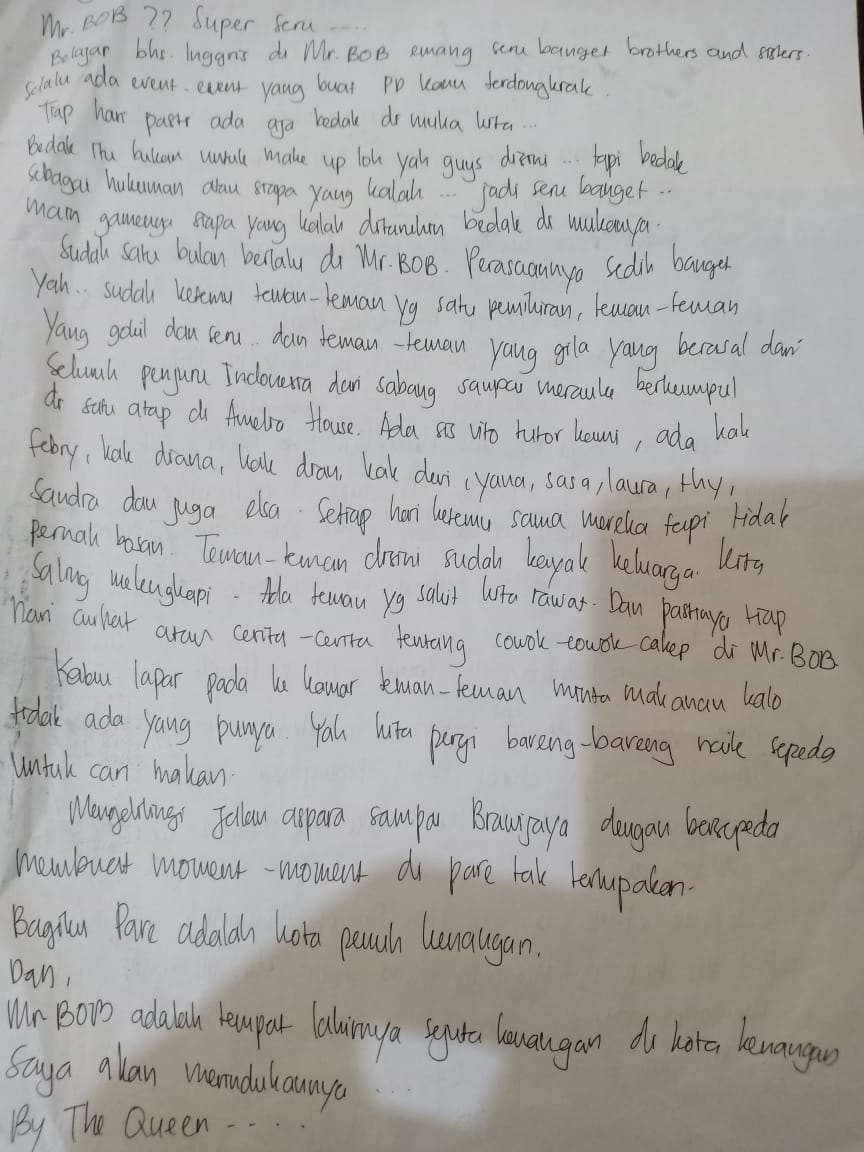 Mr. BOB ?? Super Seru .....
Belajar bhs. Inggris di Mr. BOB emang seru banget brothers and sisters.
Selalu ada event-event yang buat PD kami terdongkrak.
Tiap hari pasti ada aja bedak di muka kita ...
Bedak itu bukan untuk make up loh yah guys disini ... tapi bedak
sebagai hukuman atau siapa yang kalah ... jadi seru banget ..
main gamenya siapa yang kalah ditaruhin bedak di mukanya.
Sudah satu bulan berlalu di Mr. BOB. Perasaannya sedih banget
Yah .. sudah ketemu teman-teman yg satu pemikiran, teman-teman
Yang gokil dan seru .. dan teman-teman yang gila yang berasal dari
Seluruh penjuru Indonesia dari sabang sampai merauke berkumpul
di satu atap di Amelia House. Ada sis vito tutor kami, ada kak
febry, kak diana, kak dian, kak devi, yana, sasa, laura, thy,
Sandra dan juga elsa. Setiap hari ketemu sama mereka tapi tidak
Pernah bosan. Teman-teman disini sudah kayak keluarga. kita
Saling melengkapi. Ada teman yg sakit kita rawat. Dan pastinya tiap
hari curhat atau cerita-cerita tentang cowok-cowok cakep di Mr. BOB
Kalau lapar pada ke kamar teman-teman minta makanan kalo
tidak ada yang punya. Yah kita pergi bareng-bareng naik sepeda
Untuk cari makan.
Mengelilingi Jallan aspara sampai Brawijaya dengan bersepeda
membuat moment-moment di pare tak terlupakan.
Bagiku Pare adalah kota penuh kenangan.
Dan,
Mr BOB adalah tempat lahirnya sejuta kenangan di kota kenangan
Saya akan merindukannya ...
By The Queen - - . .